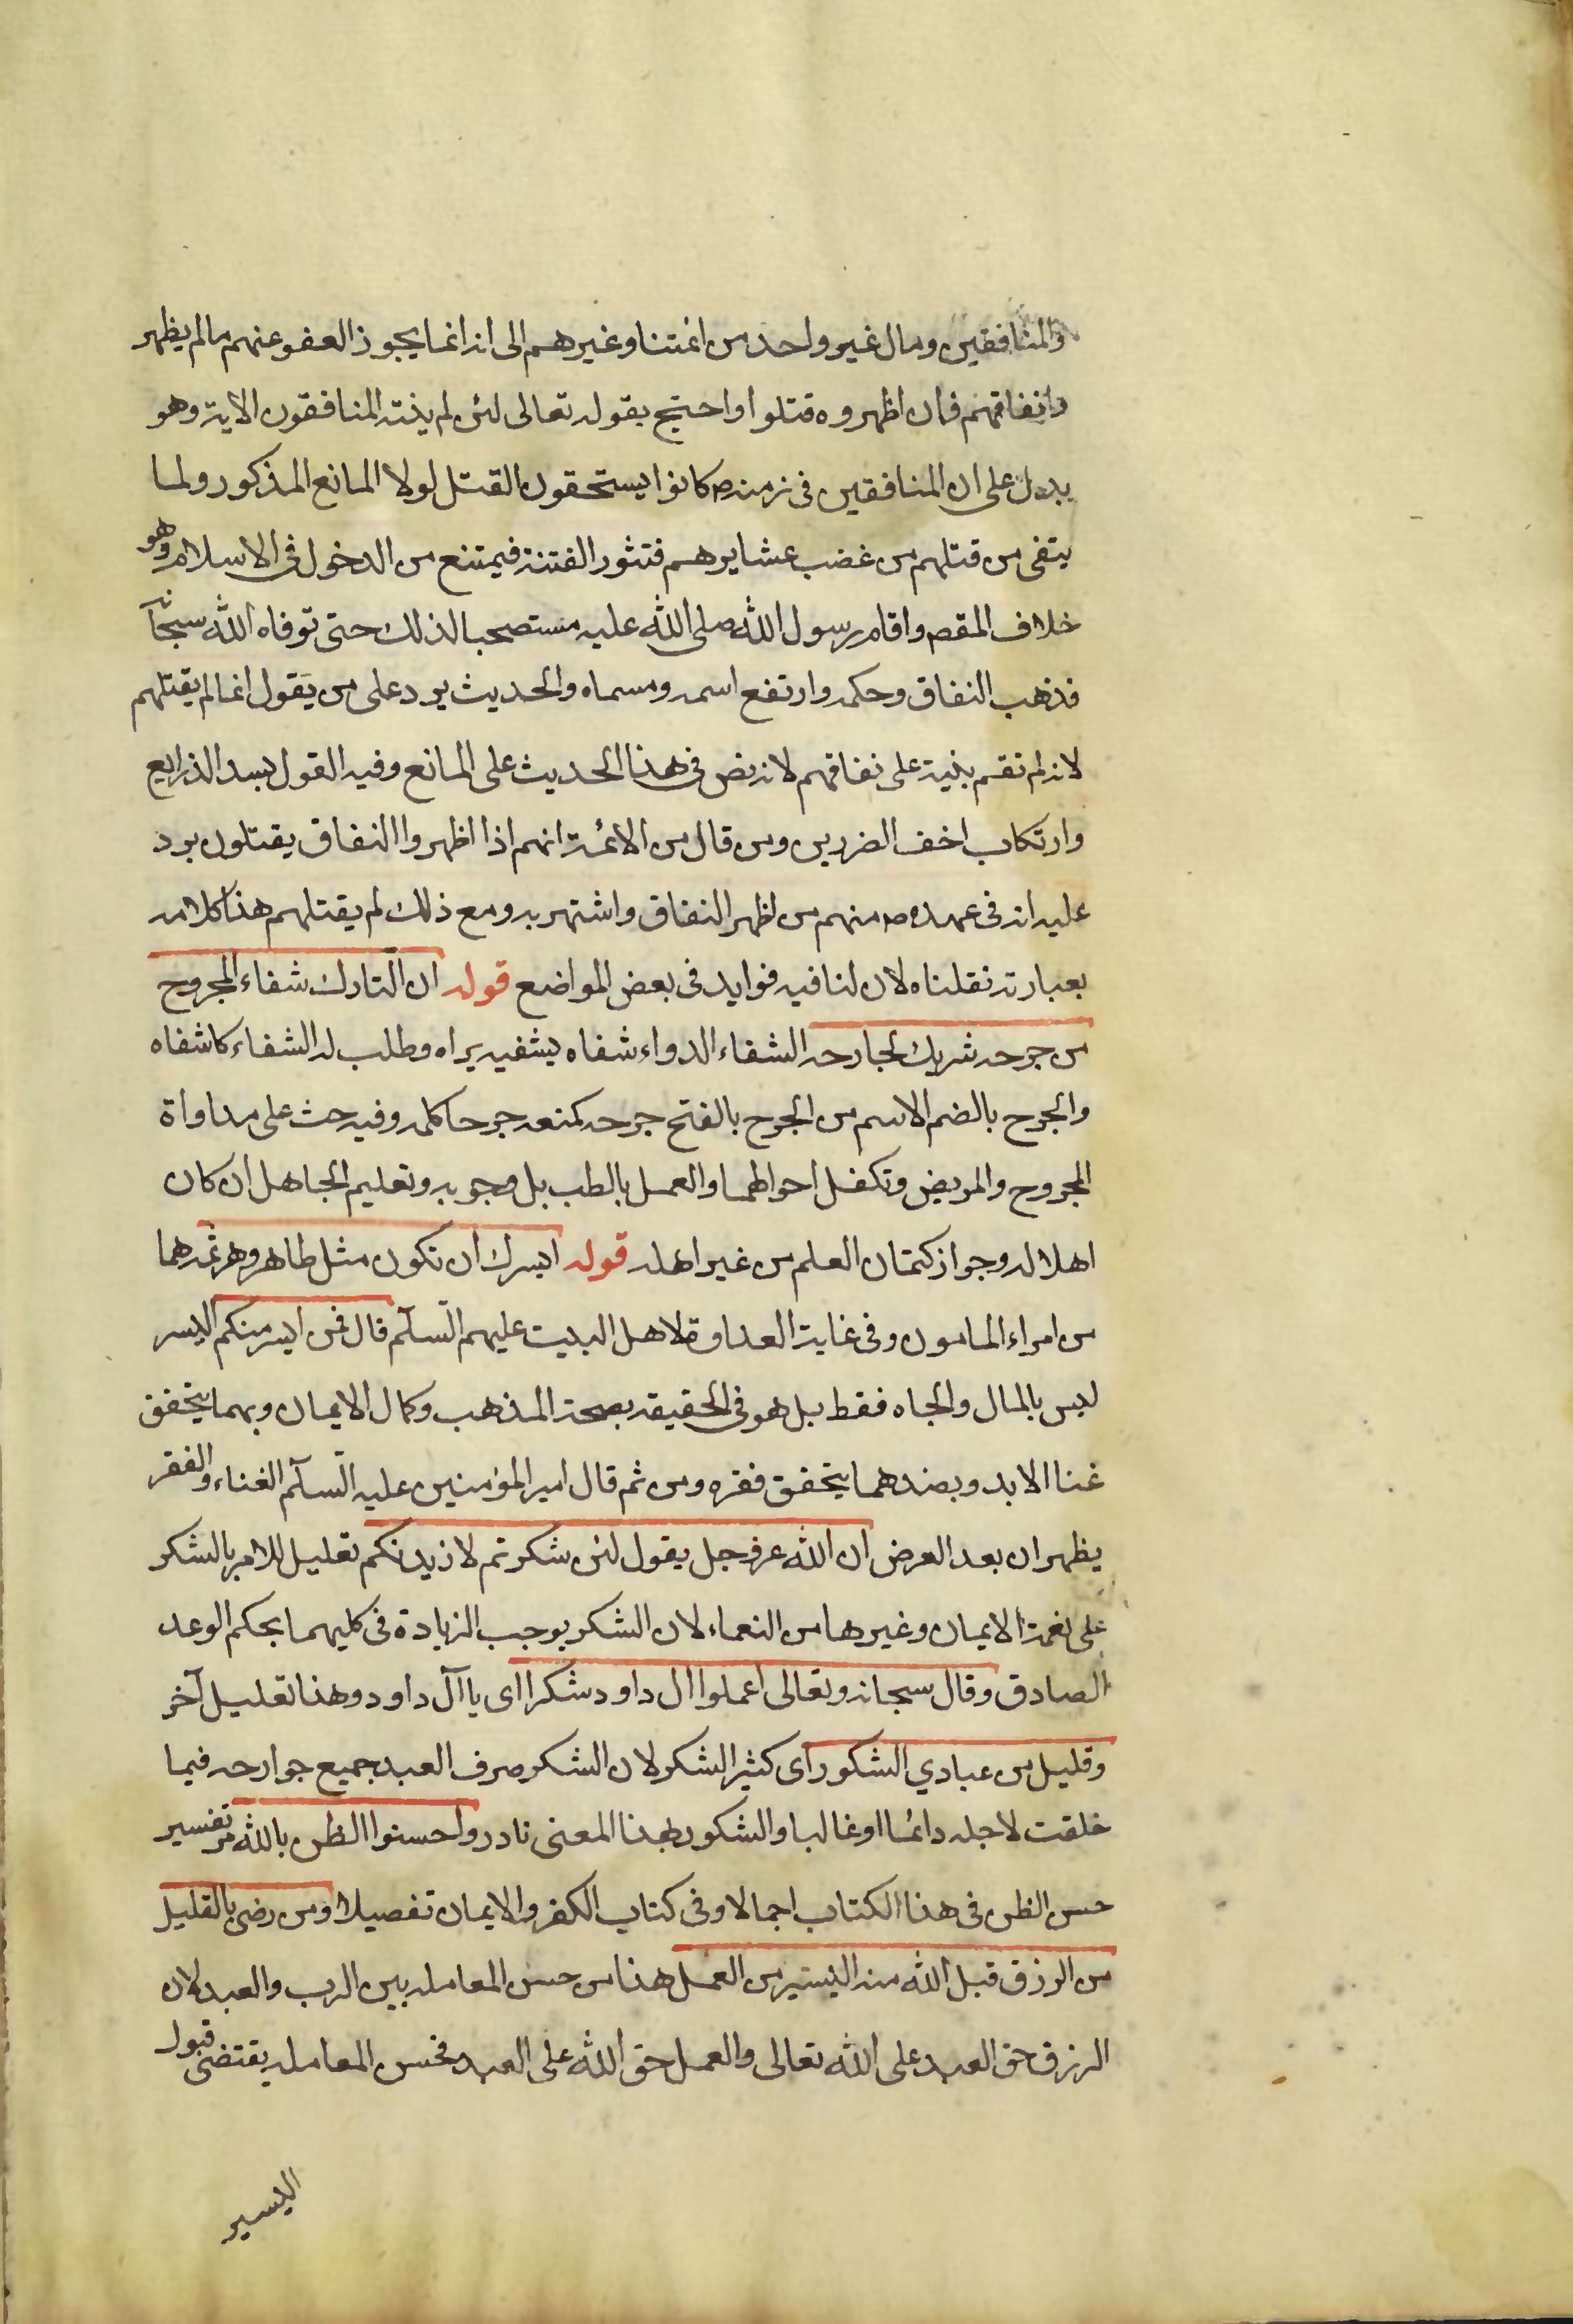 والمنافقين ومال غير واحد من ائمتنا وغيرهم الى انه انما يجوز العفو عنهم مالم يظهر
وانفاقهم فان اظهروه قتلوا واحتج بقوله تعالى لئن لم ينته المنافقون الاية وهو
يدل على ان المنافقين في زمنه ص كانوا يستحقون القتل لولا المانع المذكور ولما
يتقى من قتلهم من غضب عشايرهم فتثور الفتنة فيمتنع من الدخول في الاسلام وهو
خلاف المقص واقام رسول الله صلى الله عليه مستصحبا لذلك حتى توفاه الله سبحانه
فذهب النفاق وحكمه وارتفع اسمه ومسماه والحديث يرد على من يقول انما لم يقتلهم
لانه لم تقم بنية على نفاقهم لانه نص في هذا الحديث على المانع وفيه القول بسد الذرايع
وارتكاب اخف الضررين ومن قال من الائمة انهم اذا اظهروا النفاق يقتلون يرد
عليه انه في عهده ص منهم من اظهر النفاق واشتهر به ومع ذلك لم يقتلهم هذا كلامه
بعبارته نقلناه لان لنا فيه فوايد في بعض المواضع قوله ان التارك شفاء المجروح
من جرحه شريك لجارحه الشفاء الدواء شفاه يشفيه براه وطلب له الشفاء كاشفاه
والجرح بالضم الاسم من الجرح بالفتح جرحه كمنعه جرحا كلمه وفيه حث على مداواة
المجروح والمريض وتكفل احوالهما والعمل بالطب بل وجوبه وتعليم الجاهل ان كان
اهلا له وجواز كتمان العلم من غير اهله قوله ايسرك ان تكون مثل طاهر وهرثمه هما
من امراء المامون وفي غاية العداوة لاهل البيت عليهم السلم قال فمن ايسر منكم اليسر
ليس بالمال والجاه فقط بل هو في الحقيقة بصحة المذهب وكمال الايمان وبهما يتحقق
غنا الابد وبضدهما يتحقق فقره ومن ثم قال امير المؤمنين عليه السلم الغناء والفقر
يظهران بعد العرض ان الله عز وجل يقول لئن شكرتم لازيدنكم تعليل للامر بالشكر
على نعمة الايمان وغيرها من النعماء لان الشكر يوجب الزيادة في كليهما بحكم الوعد
الصادق وقال سبحانه وتعالى اعملوا ال داود شكرا اى يا آل داود وهذا تعليل آخر
وقليل من عبادي الشكور اى كثير الشكر لان الشكر صرف العبد جميع جوارحه فيما
خلقت لاجله دائما او غالبا والشكور بهذا المعنى نادر واحسنوا الظن بالله مر تفسير
حسن الظن في هذا الكتاب اجمالا وفي كتاب الكفر والايمان تفصيلا ومن رضى بالقليل
من الرزق قبل الله منه اليسير من العمل هذا من حسن المعامله بين الرب والعبد لان
الرزق حق العبد على الله تعالى والعمل حق الله على العبد فحسن المعامله يقتضى قبول
اليسير